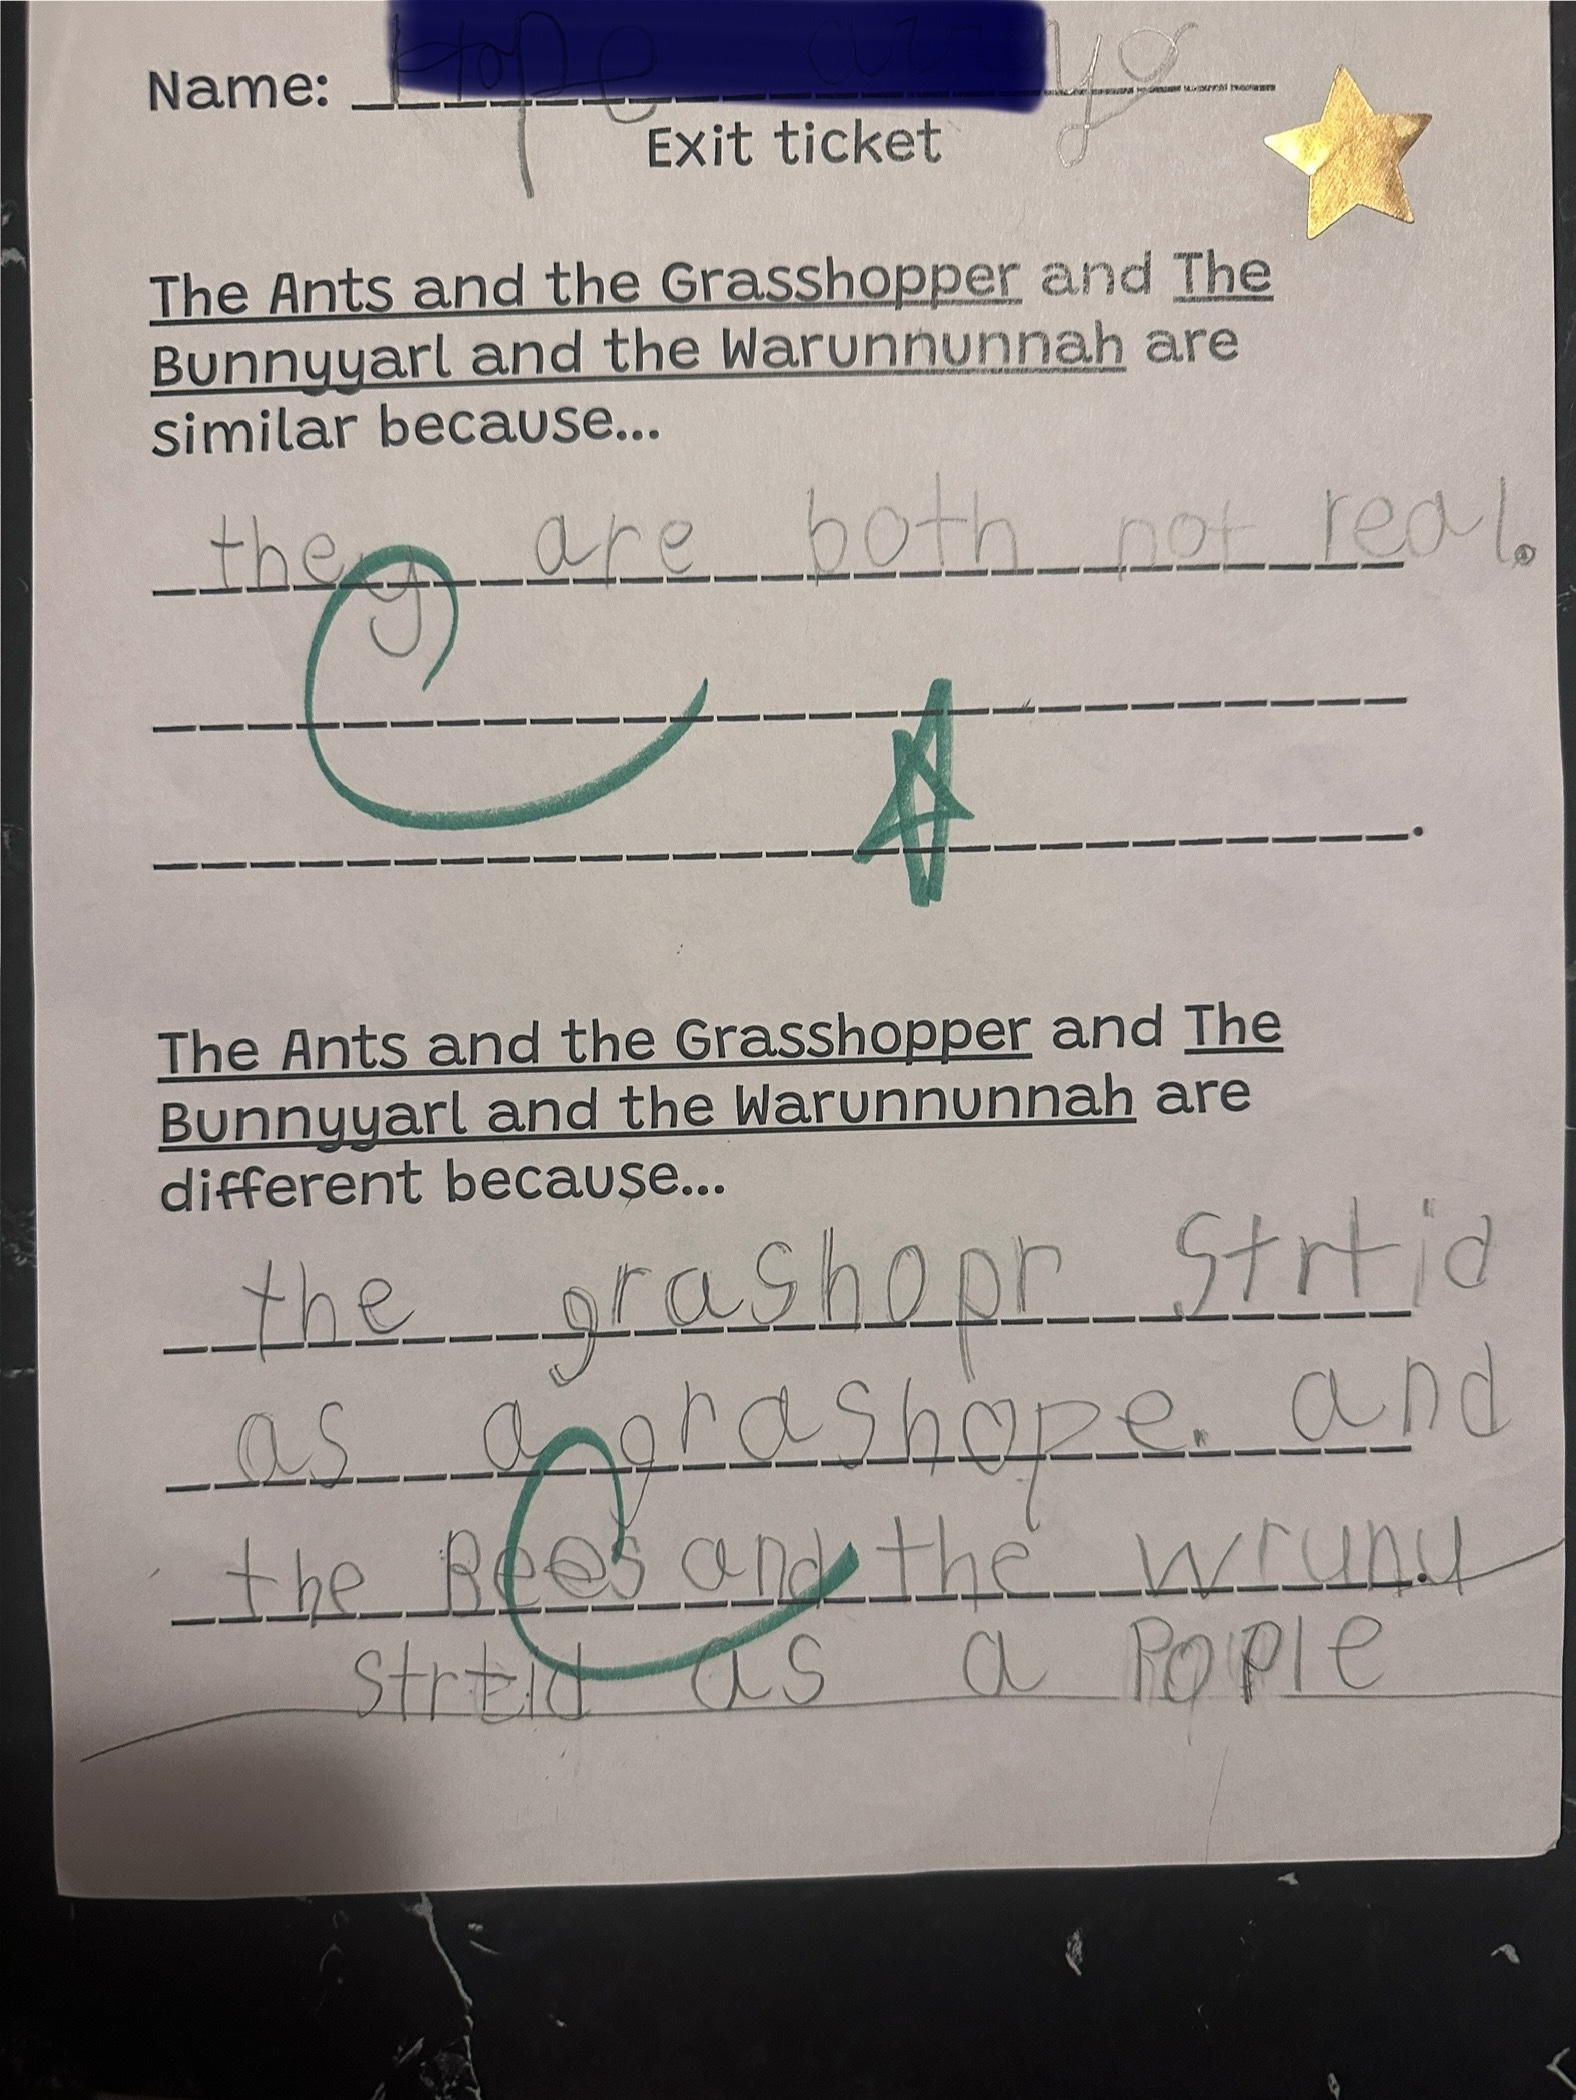 Name:
Exit ticket
The Ants and the Grasshopper and The
Bunnyyarl and the Warunnunnah are
similar because...
they are both not real.
The Ants and the Grasshopper and The
Bunnyyarl and the Warunnunnah are
different because...
the grashopr strtid
as a grashope. and
the Bees and the wrunu
strtid as a Pople